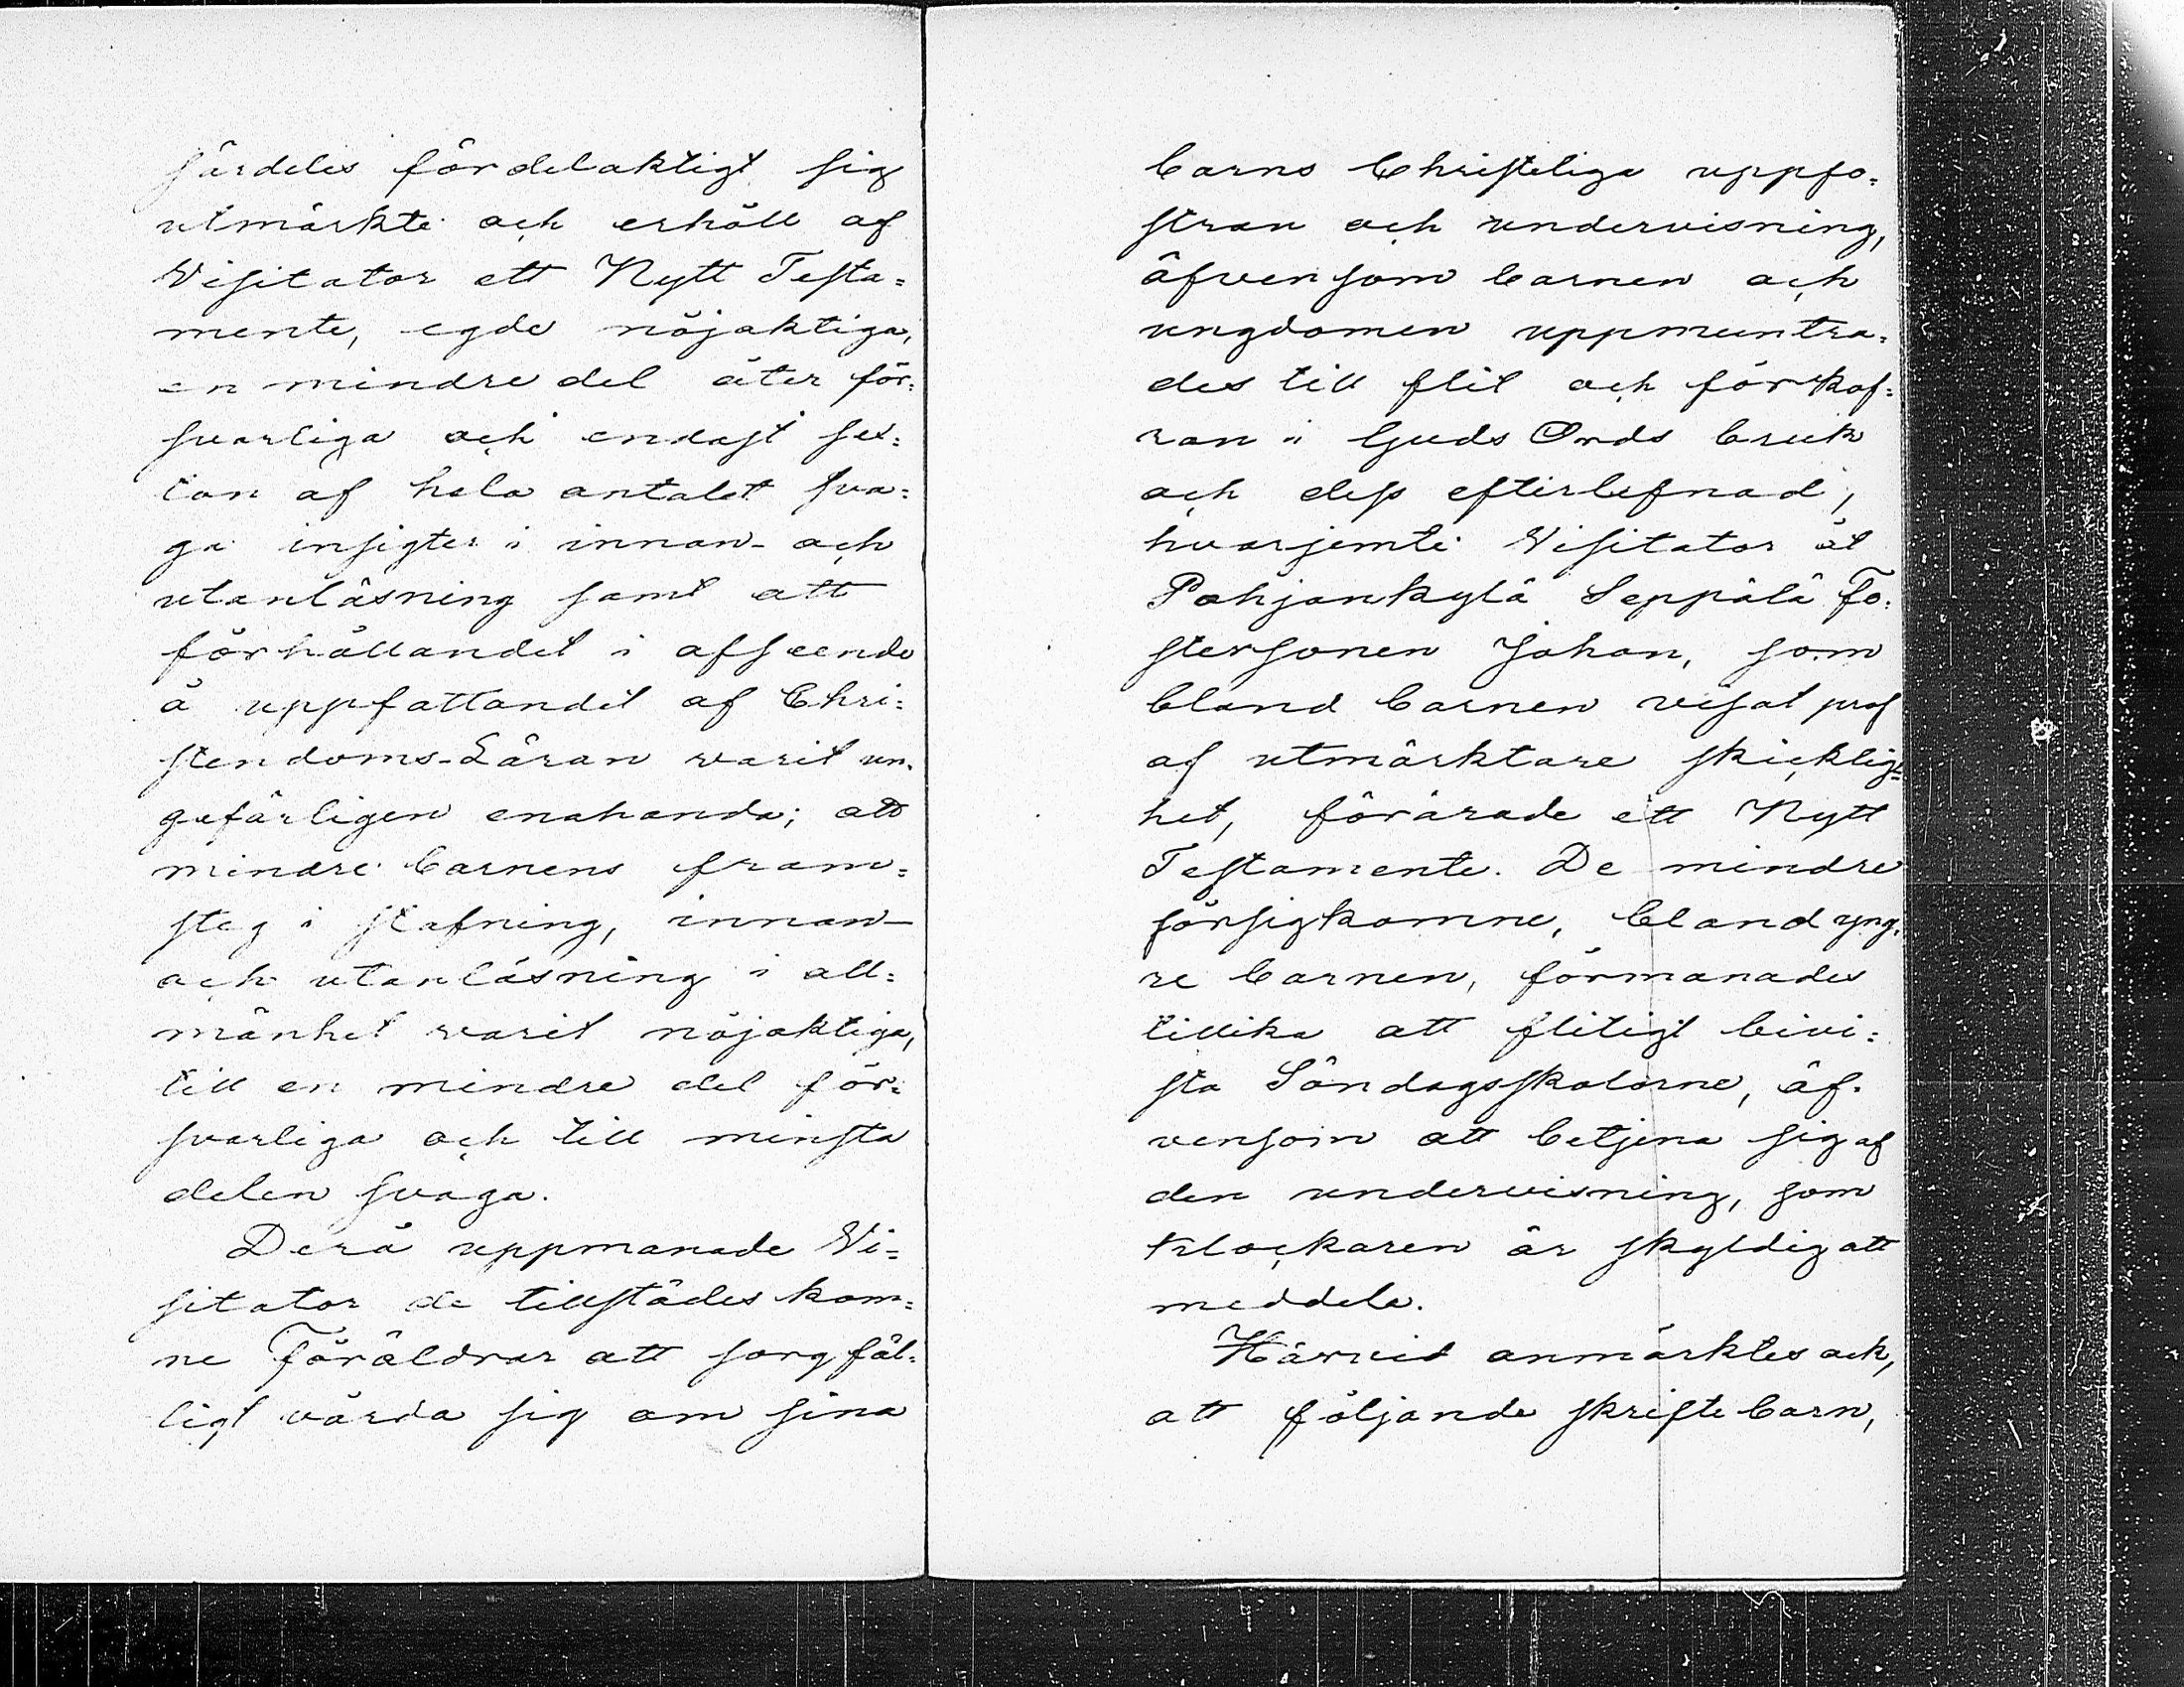 särdeles fördelaktigt sig
utmärkte och erhöll af
Visitator ett Nytt Testa=
mente, egde nöjaktiga,
en mindre del åter för=
svarliga och endast sex=
ton af hela antalet sva=
ga insigter i innan- och
utanläsning samt att
förhållandet i afseende
å uppfattandet af Chri=
stendoms-Läran varit un=
gefärligen enahanda; att
mindre barnens fram=
steg i stafning, innan-
och utanläsning i all=
mänhet varit nöjaktiga,
till en mindre del för=
svarliga och till minsta
delen svaga.
Derå uppmanade Vi=
sitator de tillstädes kom=
ne Föräldrar att sorgfäl=
ligt vårda sig om sina
barns Christeliga uppfo=
stran och undervisning,
äfvensom barnen och
ungdomen uppmuntra=
des till flit och förkof=
ran i Guds Ords bruk
och dess efterlefnad;
hvarjemte Visitator åt
Pohjankylä Seppälä Fo=
stersonen Johan, som
bland barnen visat prof
af utmärktare skicklig=
het, förärade ett Nytt
Testamente. De mindre
försigkomne, bland yng=
re barnen, förmanades
tillika att flitigt bivi=
sta Söndagsskolorne, äf=
vensom att betjena sig af
den undervisning, som
Klockaren är skyldig att
meddela.
Härvid anmärktes ock,
att följande skriftebarn,